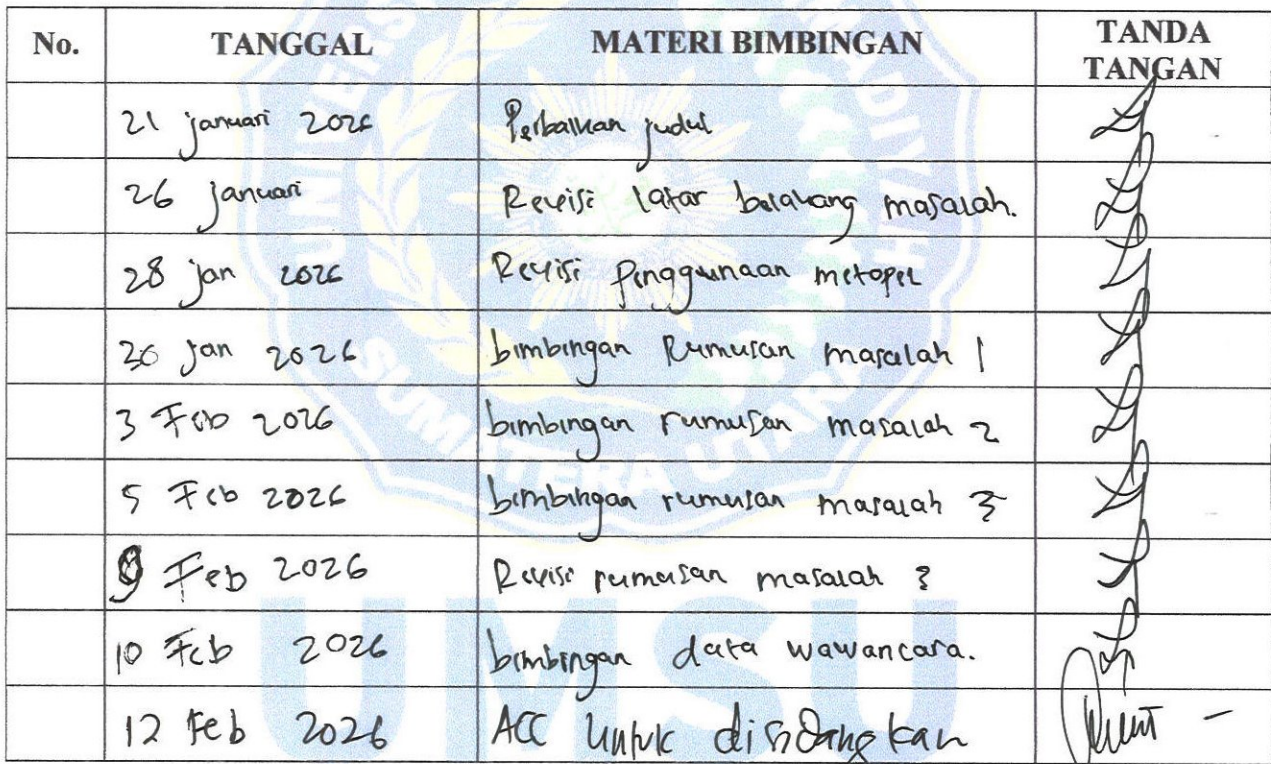 No. TANGGAL MATERI BIMBINGAN TANDA TANGAN
21 januari 2026 Perbaikan judul
26 januari Revisi latar belakang masalah.
28 jan 2026 Revisi penggunaan metopel
30 jan 2026 bimbingan Rumusan masalah 1
3 Feb 2026 bimbingan rumusan masalah 2
5 Feb 2026 bimbingan rumusan masalah 3
9 Feb 2026 Revisi rumusan masalah 3
10 Feb 2026 bimbingan data wawancara.
12 Feb 2026 ACC untuk disidangkan
SUMATERA UTARA
UMSU